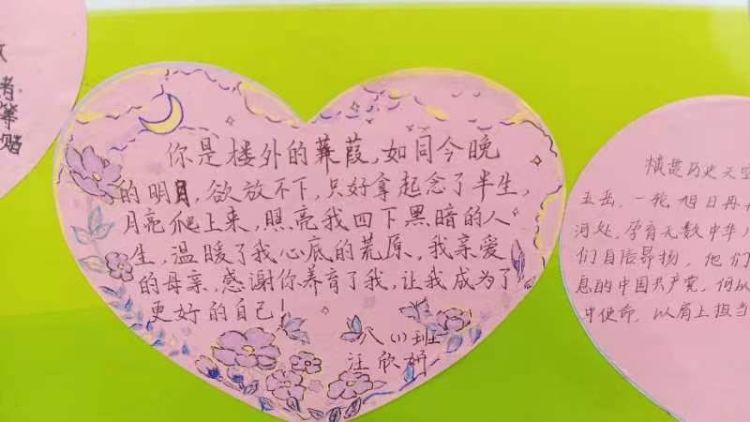 者
等
贴
你是楼外的蒹葭,如同今晚
的明月,欲放不下,只好拿起念了半生,
月亮爬上来,照亮我四下黑暗的人
生,温暖了我心底的荒原。我亲爱
的母亲,感谢你养育了我,让我成为了
更好的自己!
八(1)班
汪欣妍
横楚历史天空
五岳,一轮旭日冉冉
河处,孕育无数中华儿
们自信昂扬,他们
息的中国共产党,何以
中使命,以肩上担当